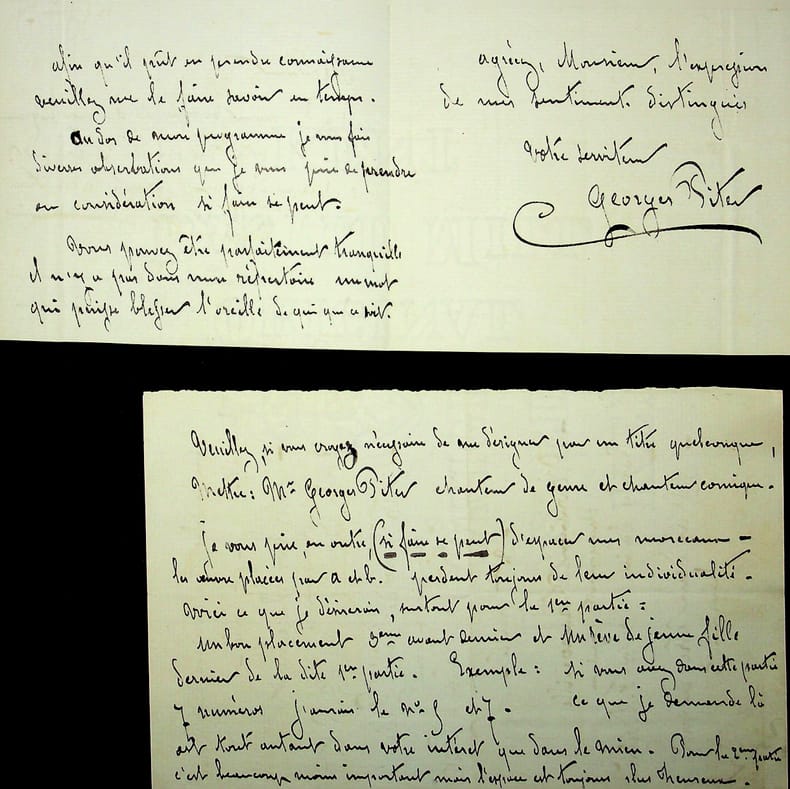 afin qu'il pût en prendre connaissance
veuillez me le faire savoir en temps.
Au dos de mon programme je vous fais
diverses observations que je vous prie de prendre
en considération si faire se peut.
Vous pouvez être parfaitement tranquille
il n'y a pas dans mon répertoire un mot
qui puisse blesser l'oreille de qui que ce soit.
agréez, Monsieur, l'expression
de mes sentiments distingués
Votre serviteur
Georges Piter
Veuillez, si vous croyez nécessaire de me désigner par un titre quelconque,
Mettre: Mr Georges Piter chanteur de genre et chanteur comique.
Je vous prie, en outre, (si faire se peut) d'espacer mes morceaux –
les œuvres placées par a et b. perdent toujours de leur individualité.
Voici ce que je désirerais, surtout pour la 1ère partie =
Un bon placement 3ème avant dernier et Un rêve de jeune fille
dernier de la dite 1ère partie. Exemple : Si vous avez dans cette partie
7 numéros j'aurais le No 5 et 7. Ce que je demande là
est tout autant dans votre intérêt que dans le mien. Pour la 2ème partie
c'est beaucoup moins important mais l'espace est toujours plus heureux.